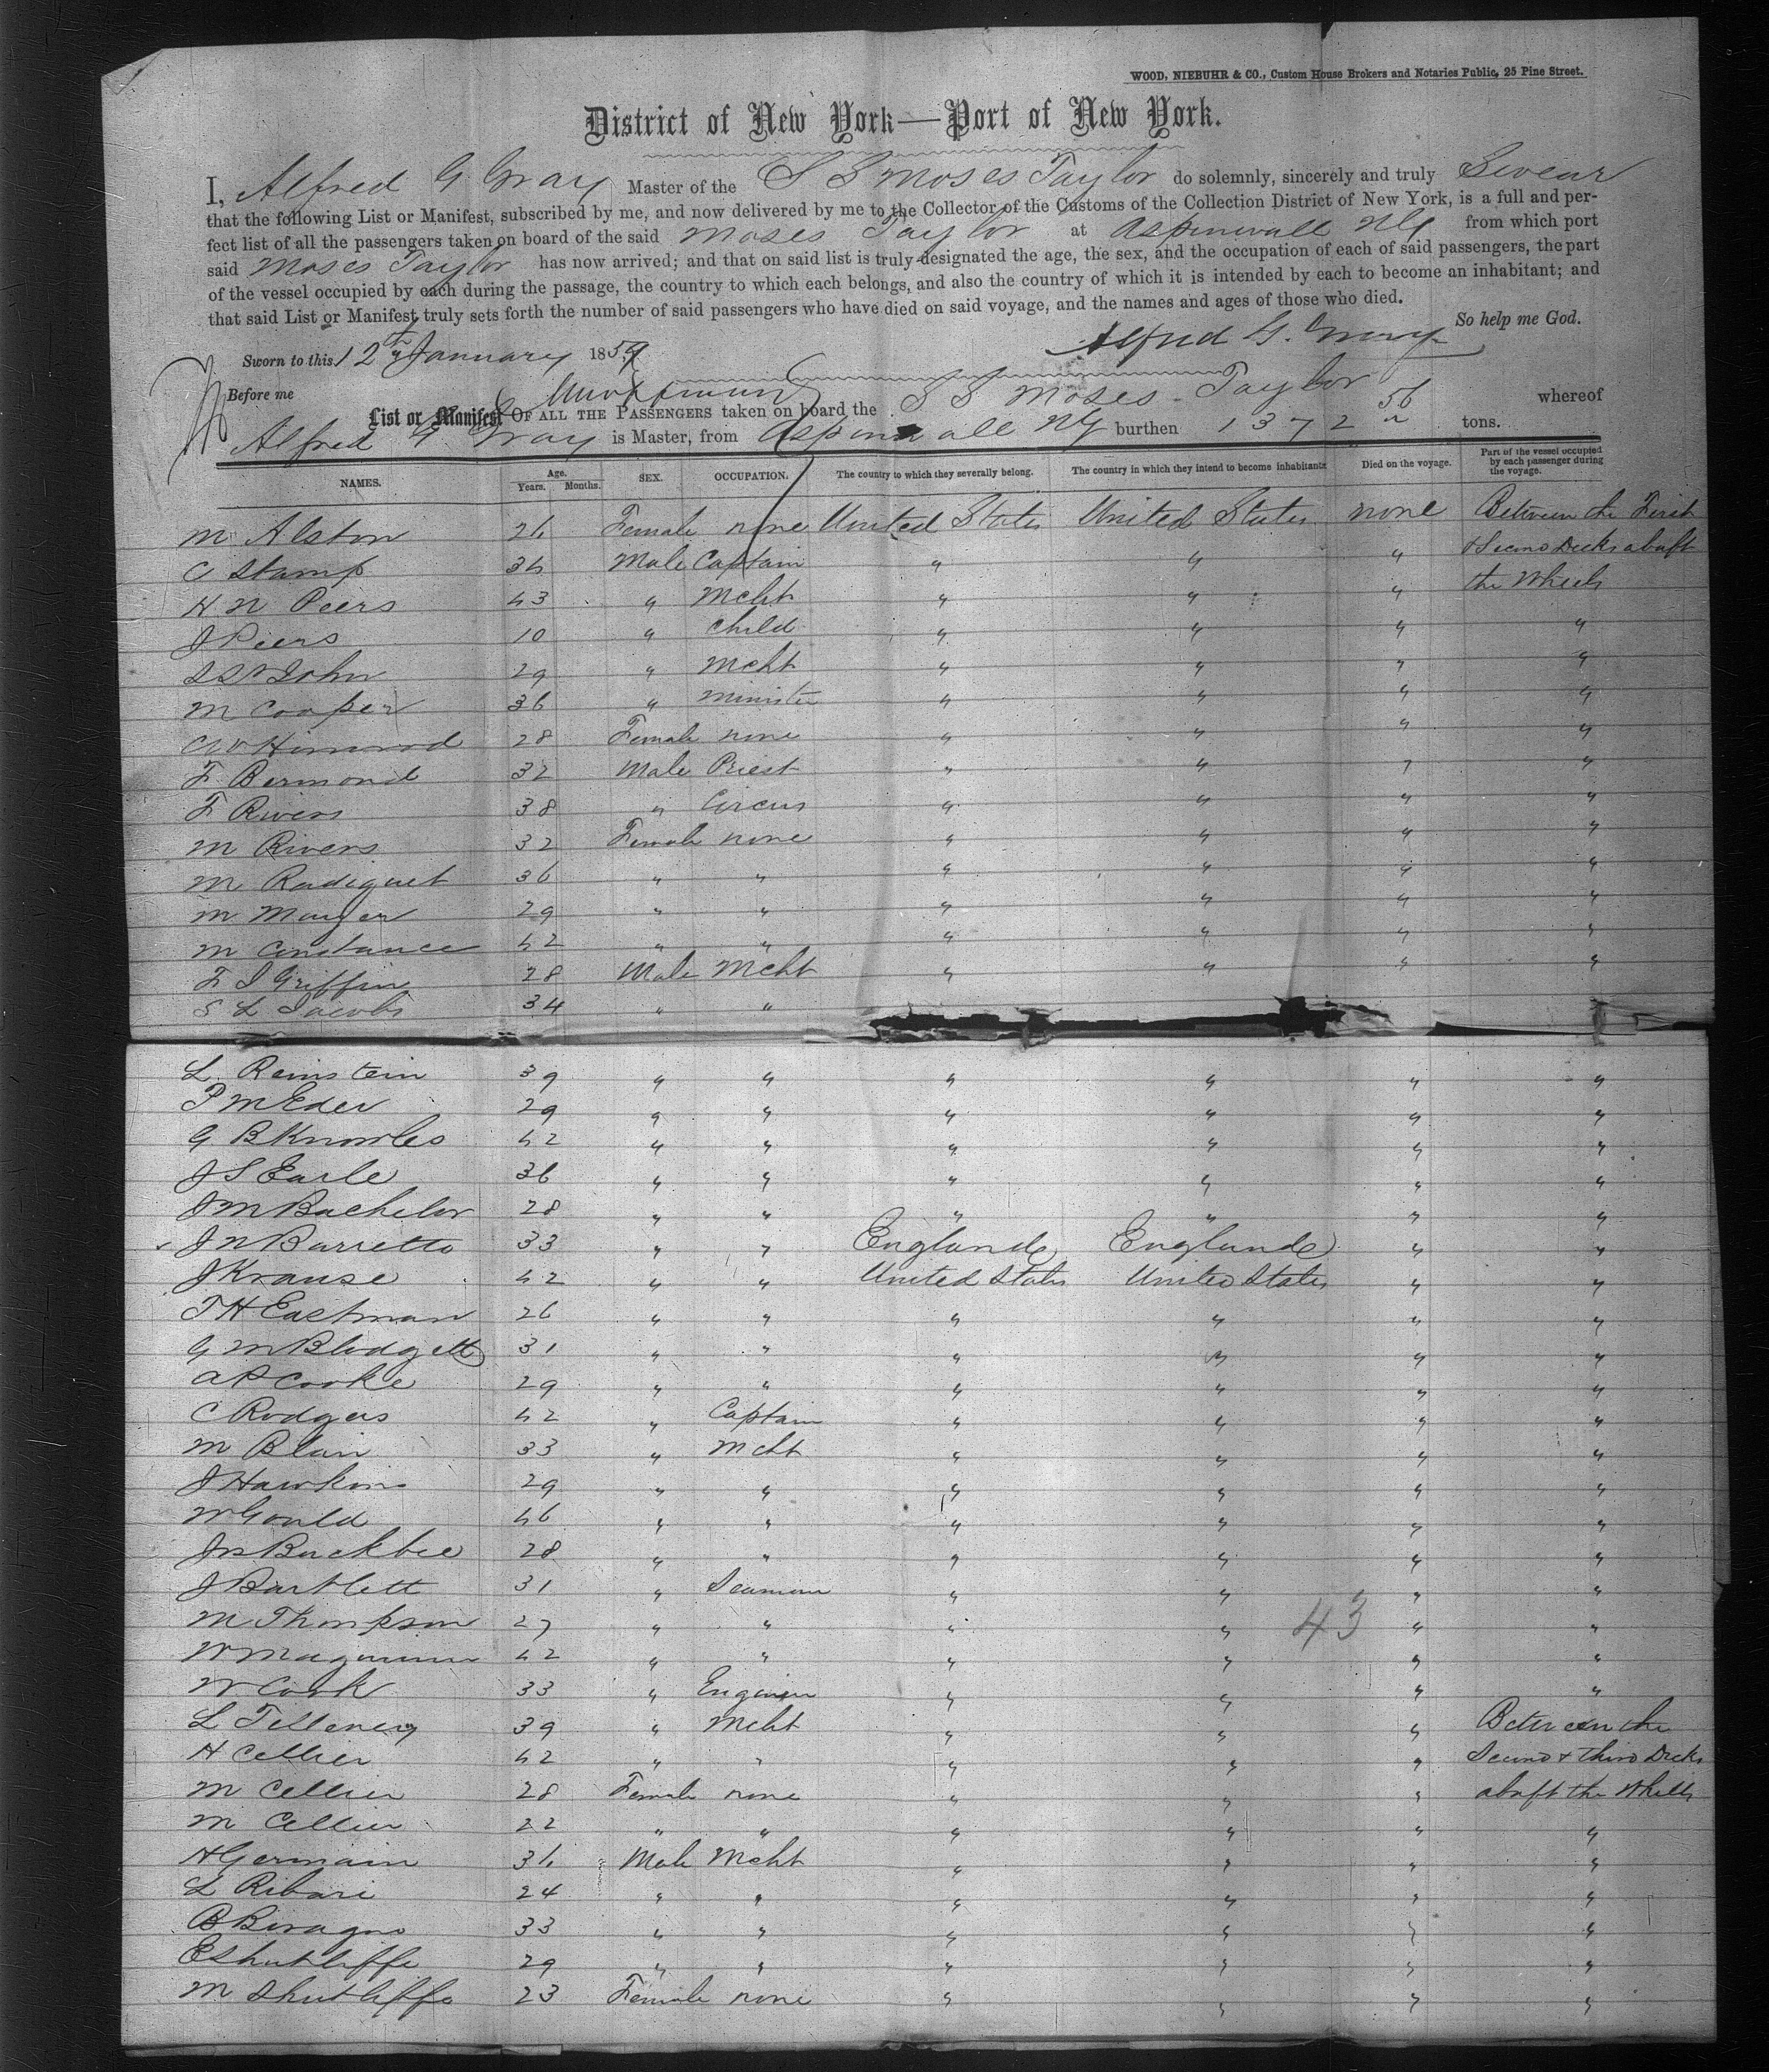 WOOD, NIEBUHR & CO., Custom House Brokers and Notaries Public, 25 Pine Street.
District of New York—Port of New York.
I, Alfred G. Gray Master of the S S Moses Taylor do solemnly, sincerely and truly Swear
that the following List or Manifest, subscribed by me, and now delivered by me to the Collector of the Customs of the Collection District of New York, is a full and per-
fect list of all the passengers taken on board of the said Moses Taylor at Aspinwall NG from which port
said Moses Taylor has now arrived; and that on said list is truly designated the age, the sex, and the occupation of each of said passengers, the part
of the vessel occupied by each during the passage, the country to which each belongs, and also the country of which it is intended by each to become an inhabitant; and
that said List or Manifest truly sets forth the number of said passengers who have died on said voyage, and the names and ages of those who died.
So help me God.
Alfred G. Gray
Sworn to this 12th January 1859
Before me
List or Manifest OF ALL THE PASSENGERS taken on board the S S Moses Taylor whereof
Alfred G Gray is Master, from Aspinwall NG burthen 1372 56 tons.
NAMES. Age. Years. Months. SEX. OCCUPATION. The country to which they severally belong. The country in which they intend to become inhabitants Died on the voyage. Part of the vessel occupied by each passenger during the voyage.
M Alston 26 Female none United States United States none Between the First
C Stamp 34 Male Captain " " " & Second Decks abaft
H N Peers 43 " Mcht " " " the Wheels
J Peers 10 " Child " " " "
St John 29 " Mcht " " " "
M Cooper 36 " Minister " " " "
Himrod 28 Female none " " " "
F Bermond 32 Male Priest " " " "
F Rivers 38 " Circus " " " "
M Rivers 32 Female none " " " "
M Radiguet 36 " " " " " "
M Mayer 29 " " " " " "
M Constance 42 " " " " " "
F I Griffin 28 Male Mcht " " " "
S L Jacobs 34 " "
L Reinstein 39 " " " " " "
P M Eder 29 " " " " " "
G B Knowles 42 " " " " " "
J S Earle 36 " " " " " "
J M Bachelor 28 " " " " " "
J N Barretto 33 " " England England " "
J Krause 42 " " United States United States " "
T H Eastman 26 " " " " " "
G M Blodgett 31 " " " " " "
A P Cooke 29 " " " " " "
C Rodgers 42 " Captain " " " "
M Blair 33 " Mcht " " " "
J Hawkins 29 " " " " " "
W Gould 46 " " " " " "
Buckbee 28 " " " " " "
J Bartlett 31 " Seaman " " " "
M Thompson 27 " " " " 43 " "
W Magnum 42 " " " " " "
W Cook 33 " Engineer " " " "
L 39 " Mcht " " " Between the
H Cellier 42 " " " " " Second & Third Decks
M Cellier 28 Female none " " " abaft the Wheels
M Cellier 22 " " " " " "
H Germain 34 Male Mcht " " " "
L Ribari 24 " " " " " "
B Biragno 33 " " " " " "
E Shutliffe 29 " " " " " "
M Shutliffe 23 Female none " " " "